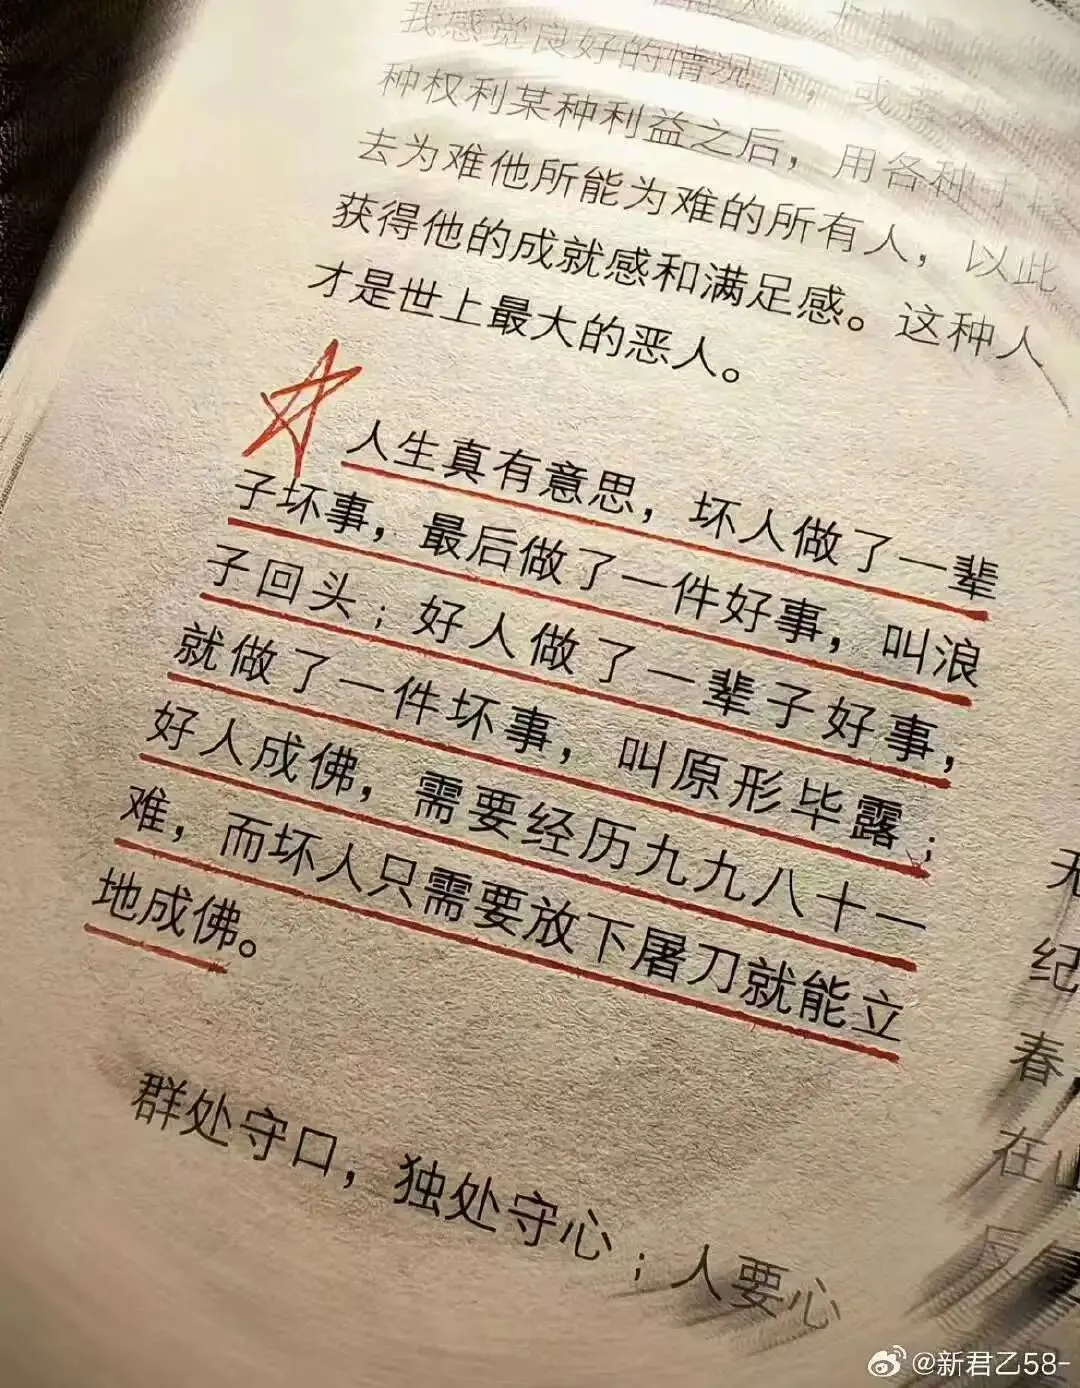 我感觉良好的情况下，或
种权利某种利益之后，用各种手
去为难他所能为难的所有人，以此
获得他的成就感和满足感。这种人
才是世上最大的恶人。
人生真有意思，坏人做了一辈
子坏事，最后做了一件好事，叫浪
子回头；好人做了一辈子好事，
就做了一件坏事，叫原形毕露；
好人成佛，需要经历九九八十一
难，而坏人只需要放下屠刀就能立
地成佛。
群处守口，独处守心；人要心
纪
春
在
@新君乙58-